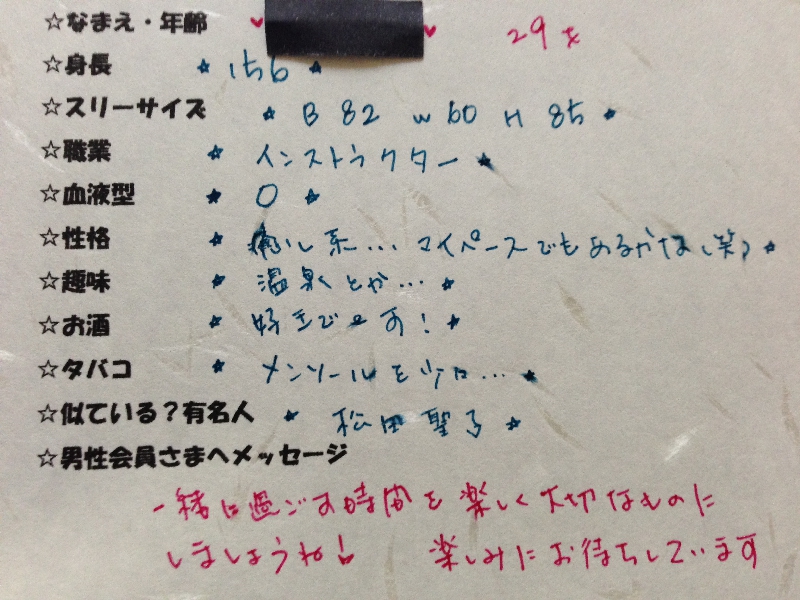 ☆なまえ・年齢 ♥ ♥ 29才
☆身長 ★ 156 ★
☆スリーサイズ ★ B 82 W 60 H 85 ★
☆職業 ★ インストラクター ★
☆血液型 ★ O ★
☆性格 ★ 癒し系… マイペースでもあるかな(笑) ★
☆趣味 ★ 温泉とか… ★
☆お酒 ★ 好きでーす! ★
☆タバコ ★ メンソールを少々… ★
☆似ている?有名人 ★ 松田聖子 ★
☆男性会員さまへメッセージ
一緒に過ごす時間を楽しく大切なものに
しましょうね! 楽しみにお待ちしています